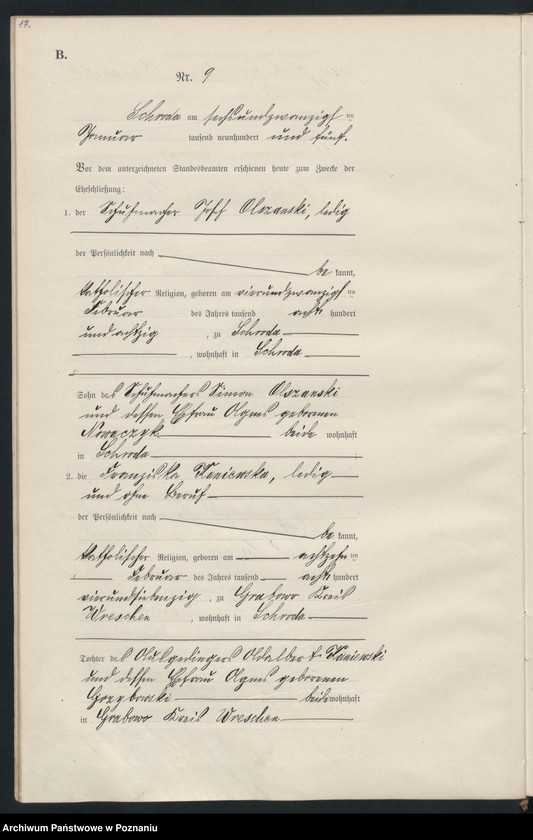 17.
B.
Nr. 9
Schroda am sechsundzwanzigsten
Januar tausend neunhundert und fünf.
Vor dem unterzeichneten Standesbeamten erschienen heute zum Zwecke der
Eheschließung:
1. der Schuhmacher Josef Olszanski, ledig
der Persönlichkeit nach
be kannt,
katholischer Religion, geboren am vierundzwanzigsten
Februar des Jahres tausend acht hundert
und achtzig, zu Schroda
, wohnhaft in Schroda
Sohn des Schuhmachers Simon Olszanski
und dessen Ehefrau Agnes geborenen
Nowaczyk beide wohnhaft
in Schroda
2. die Franziska Kaniewska, ledig
und ohne Beruf
der Persönlichkeit nach
be kannt,
katholischer Religion, geboren am achtzehnten
Februar des Jahres tausend acht hundert
vierundsiebenzig, zu Grabowo Kreis
Wreschen, wohnhaft in Schroda
Tochter des Adalbert Kaniewski
und dessen Ehefrau Agnes geborenen
Grzybowski beide wohnhaft
in Grabowo Kreis Wreschen
Archiwum Państwowe w Poznaniu